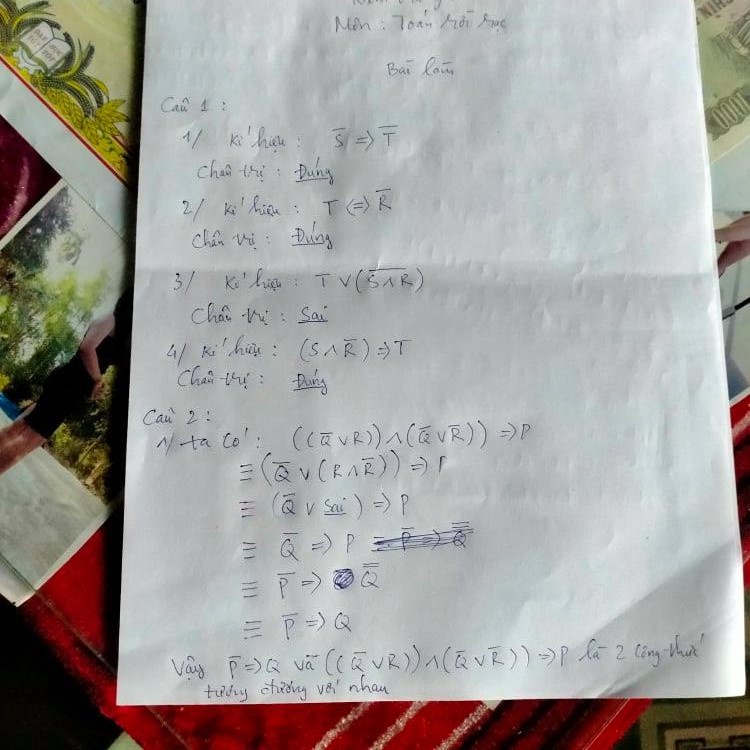 Môn : Toán rời rạc
Bài làm
Câu 1 :
1/ Kí hiệu : S̅ => T̅
Chân trị : Đúng
2/ Kí hiệu : T <=> R̅
Chân trị : Đúng
3/ Kí hiệu : T ∨ (S̅ ̅∧̅ ̅R̅)
Chân trị : Sai
4/ Kí hiệu : (S ∧ R̅) => T
Chân trị : Đúng
Câu 2 :
1/ ta có : ((Q̅ ∨ R)) ∧ (Q̅ ∨ R̅)) => P
≡ (Q̅ ∨ (R ∧ R̅)) => P
≡ (Q̅ ∨ Sai) => P
≡ Q̅ => P
≡ P̅ => Q̿
≡ P̅ => Q
Vậy P̅ => Q và ((Q̅ ∨ R)) ∧ (Q̅ ∨ R̅)) => P là 2 công thức
tương đương với nhau